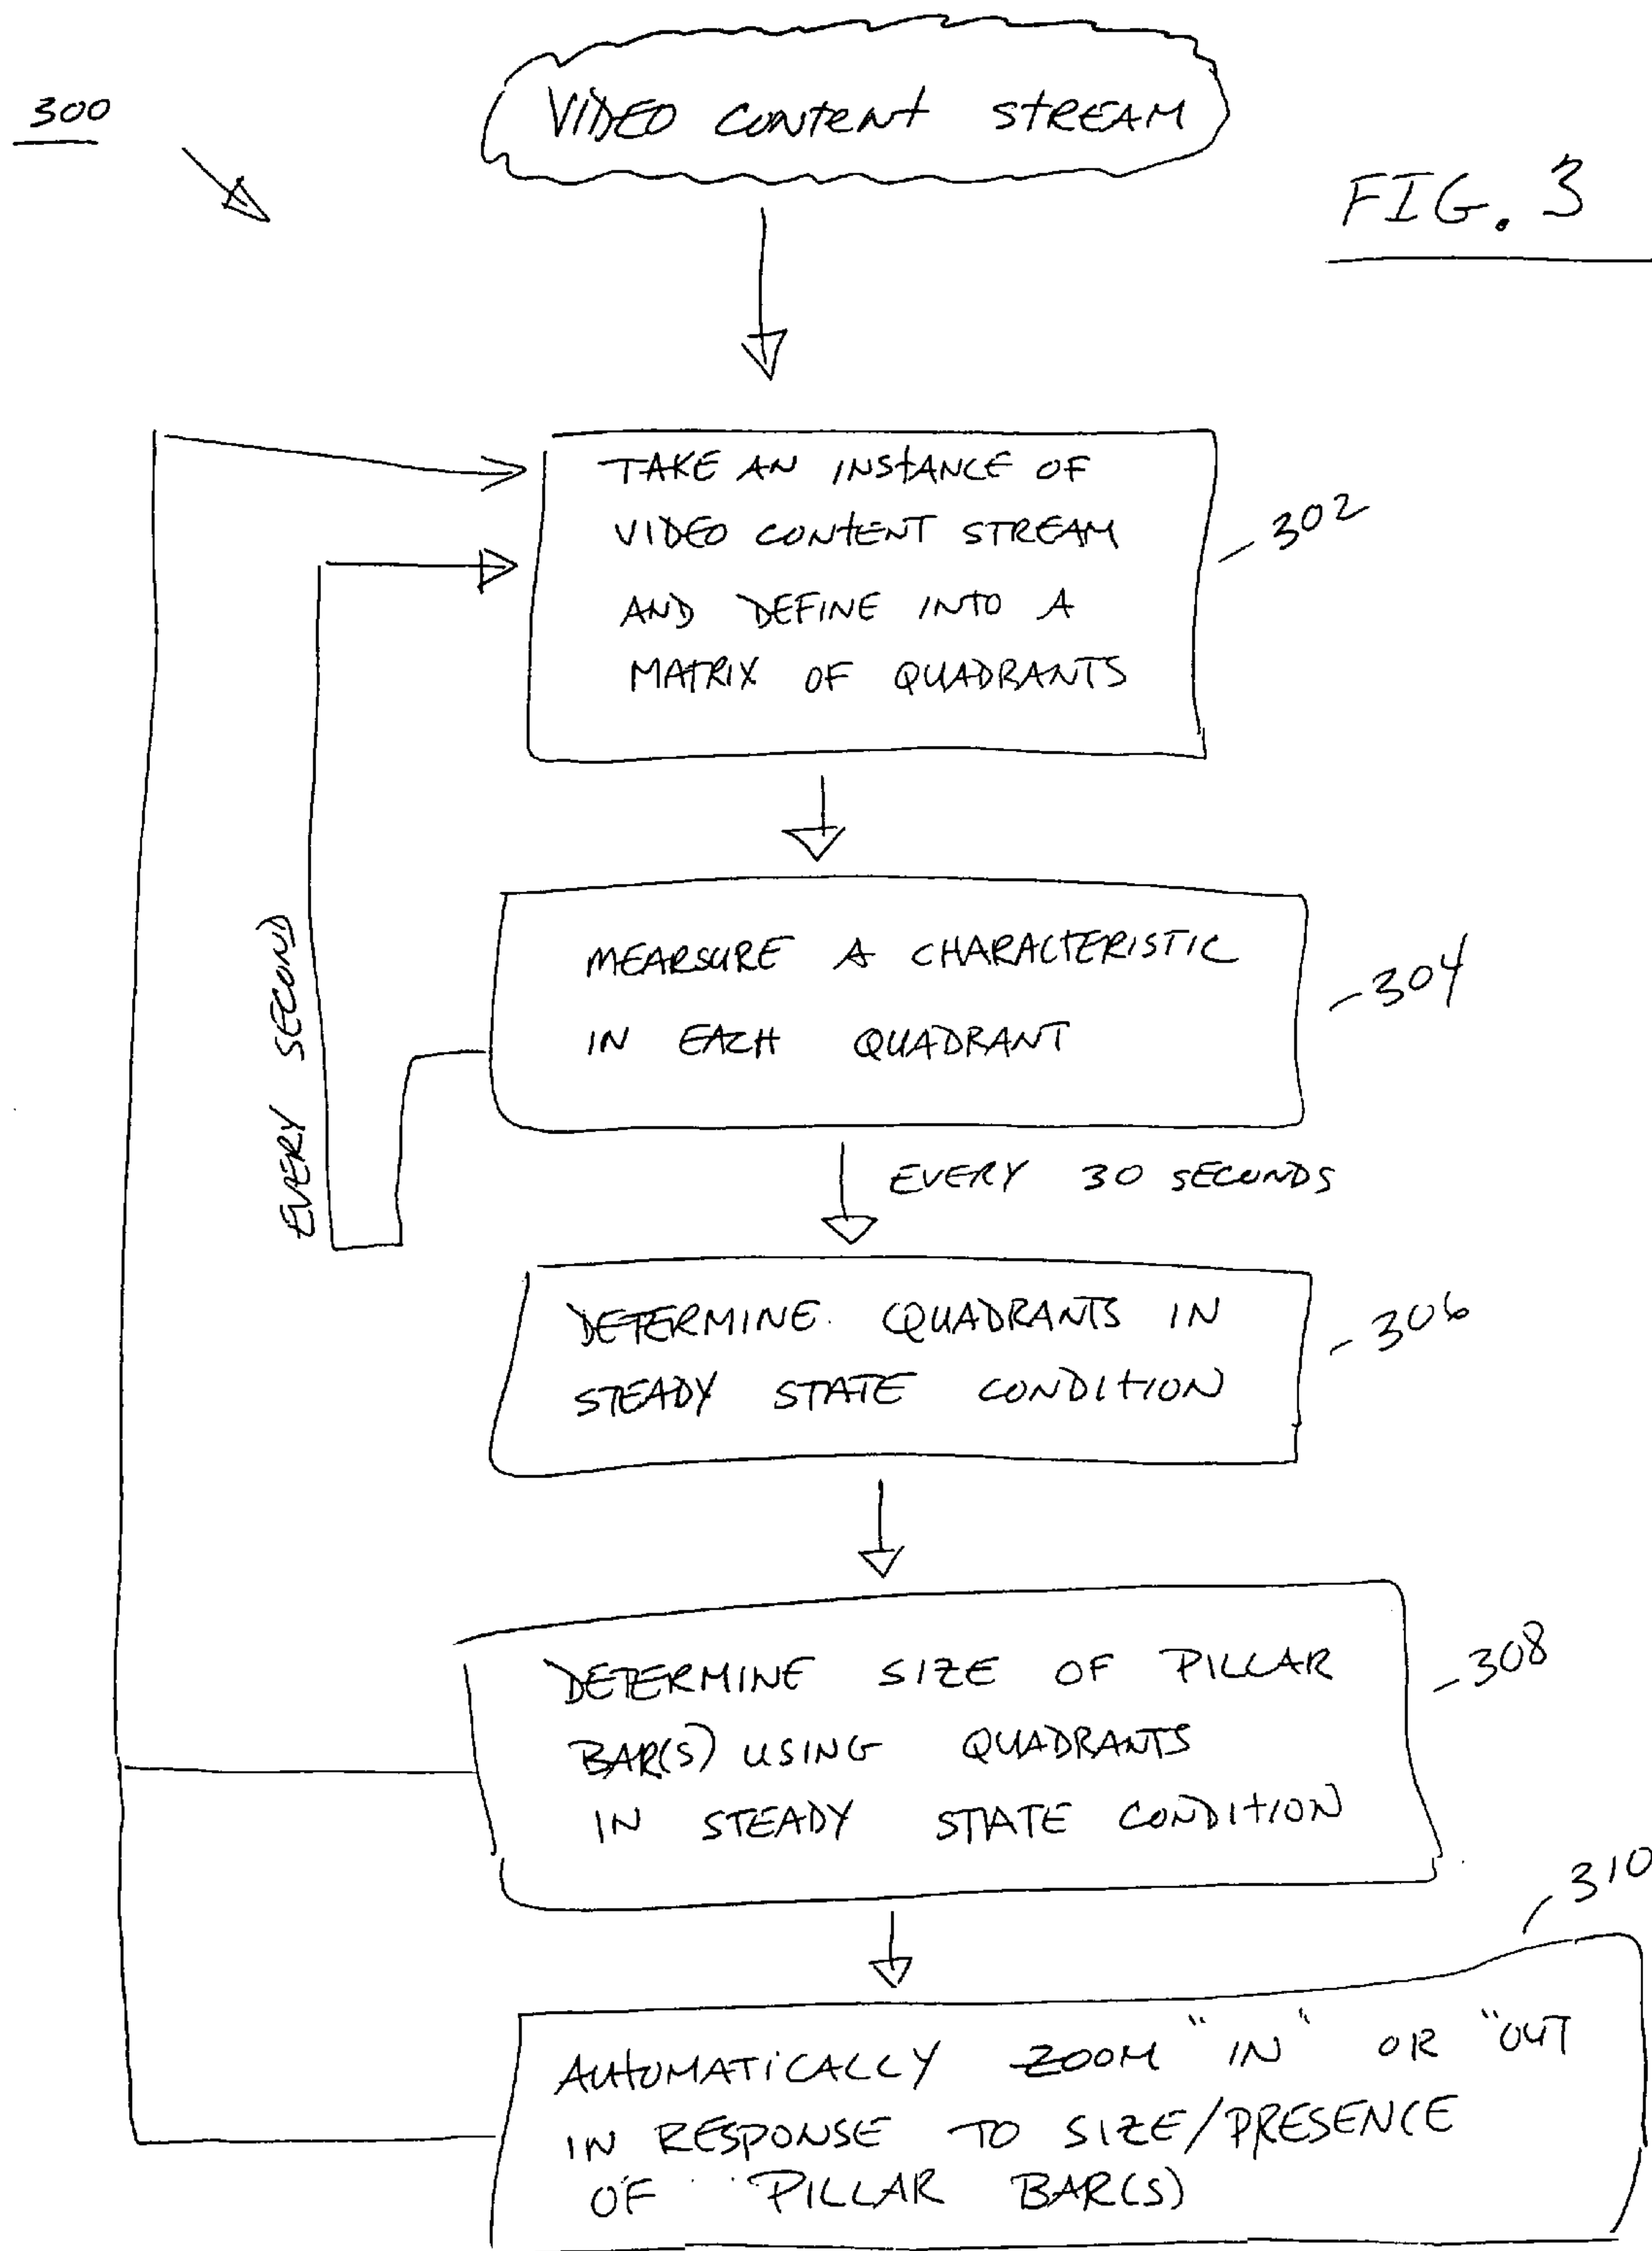 300
VIDEO CONTENT STREAM
FIG. 3
TAKE AN INSTANCE OF
VIDEO CONTENT STREAM
AND DEFINE INTO A
MATRIX OF QUADRANTS
302
MEARSURE A CHARACTERISTIC
IN EACH QUADRANT
304
EVERY SECOND
EVERY 30 SECONDS
DETERMINE. QUADRANTS IN
STEADY STATE CONDITION
306
DETERMINE SIZE OF PILLAR
BAR(S) USING QUADRANTS
IN STEADY STATE CONDITION
308
310
AUTOMATICALLY ZOOM "IN" OR "OUT
IN RESPONSE TO SIZE/PRESENCE
OF PILLAR BAR(S)